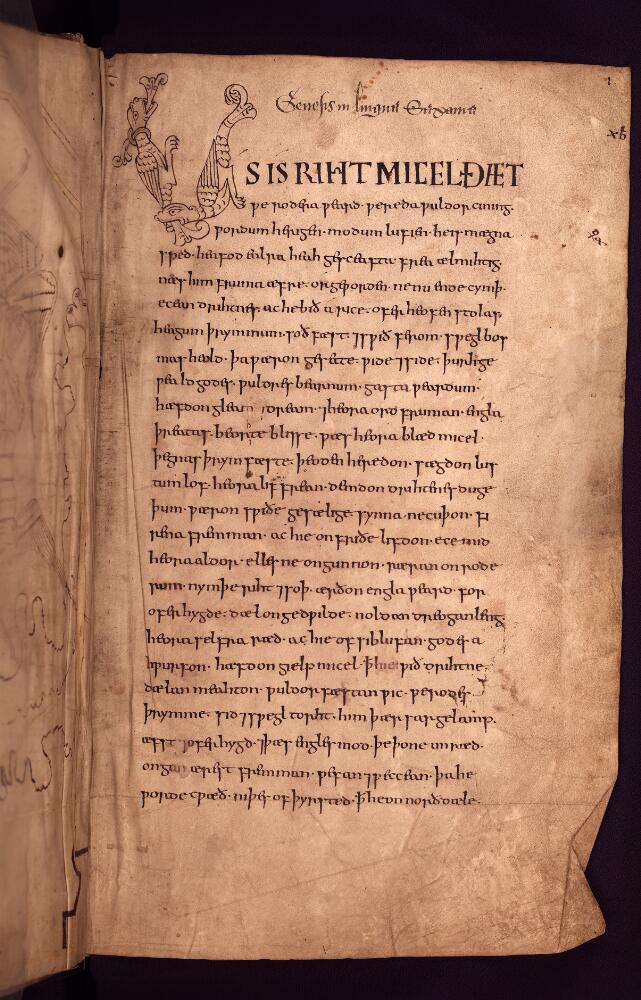 Genesis in lingua Saxania
1
US IS RIHT MICEL ÐÆT
ƿe rodera ƿeard · ƿereda ƿuldor cining ·
ƿordum herigen · modum lufien · he is mægna
sped · heafod ealra heahgesceafta · frea ælmihtig ·
næs him fruma æfre · or geƿorden · ne nu ende cymþ ·
ecean drihtnes · ac he bið a rice · ofer heofen stolas ·
heagum þrymmum · soðfæst · ⁊ sƿiðferom · sƿegl bos
mas heold · þa ƿæron gesette · ƿide ⁊ side · þurh geƿe
ald godes · ƿuldres bearnum · gasta ƿeardum ·
hæfdon gleam ⁊ dream · ⁊ heora ordfruman · engla
þreatas · beorhte blisse · ƿæs heora blæd micel ·
þegnas þrymfæste · þeoden heredon · sægdon lus
tum lof · heora liffrean · demdon drihtenes duge
þum · ƿæron sƿiðe gesælige · synna ne cuþon · fi
rena fremman · ac hie on friðe lifdon · ece mid
heora aldor · elles ne ongunnon · ræran on rode
rum · nymþe riht ⁊ soþ · ærðon engla ƿeard · for
oferhygde · dæl on gedƿilde · noldan dreogan leng ·
heora selfra ræd · ac hie of siblufan · godes a
hƿurfon · hæfdon gielp micel · þ hie ƿið drihtne ·
dælan meahton · ƿuldorfæstan ƿic · ƿerodes ·
þrymme · sid ⁊ sƿegltorht · him þær sar gelamp ·
æfst ⁊ oferhygd · ⁊ þæs engles mod · þe þone unræd ·
ongan ærest fremman · ƿefan ⁊ ƿeccean · þa he
ƿorde cƿæð · niþes ofþyrsted · þ he on norðdæle ·